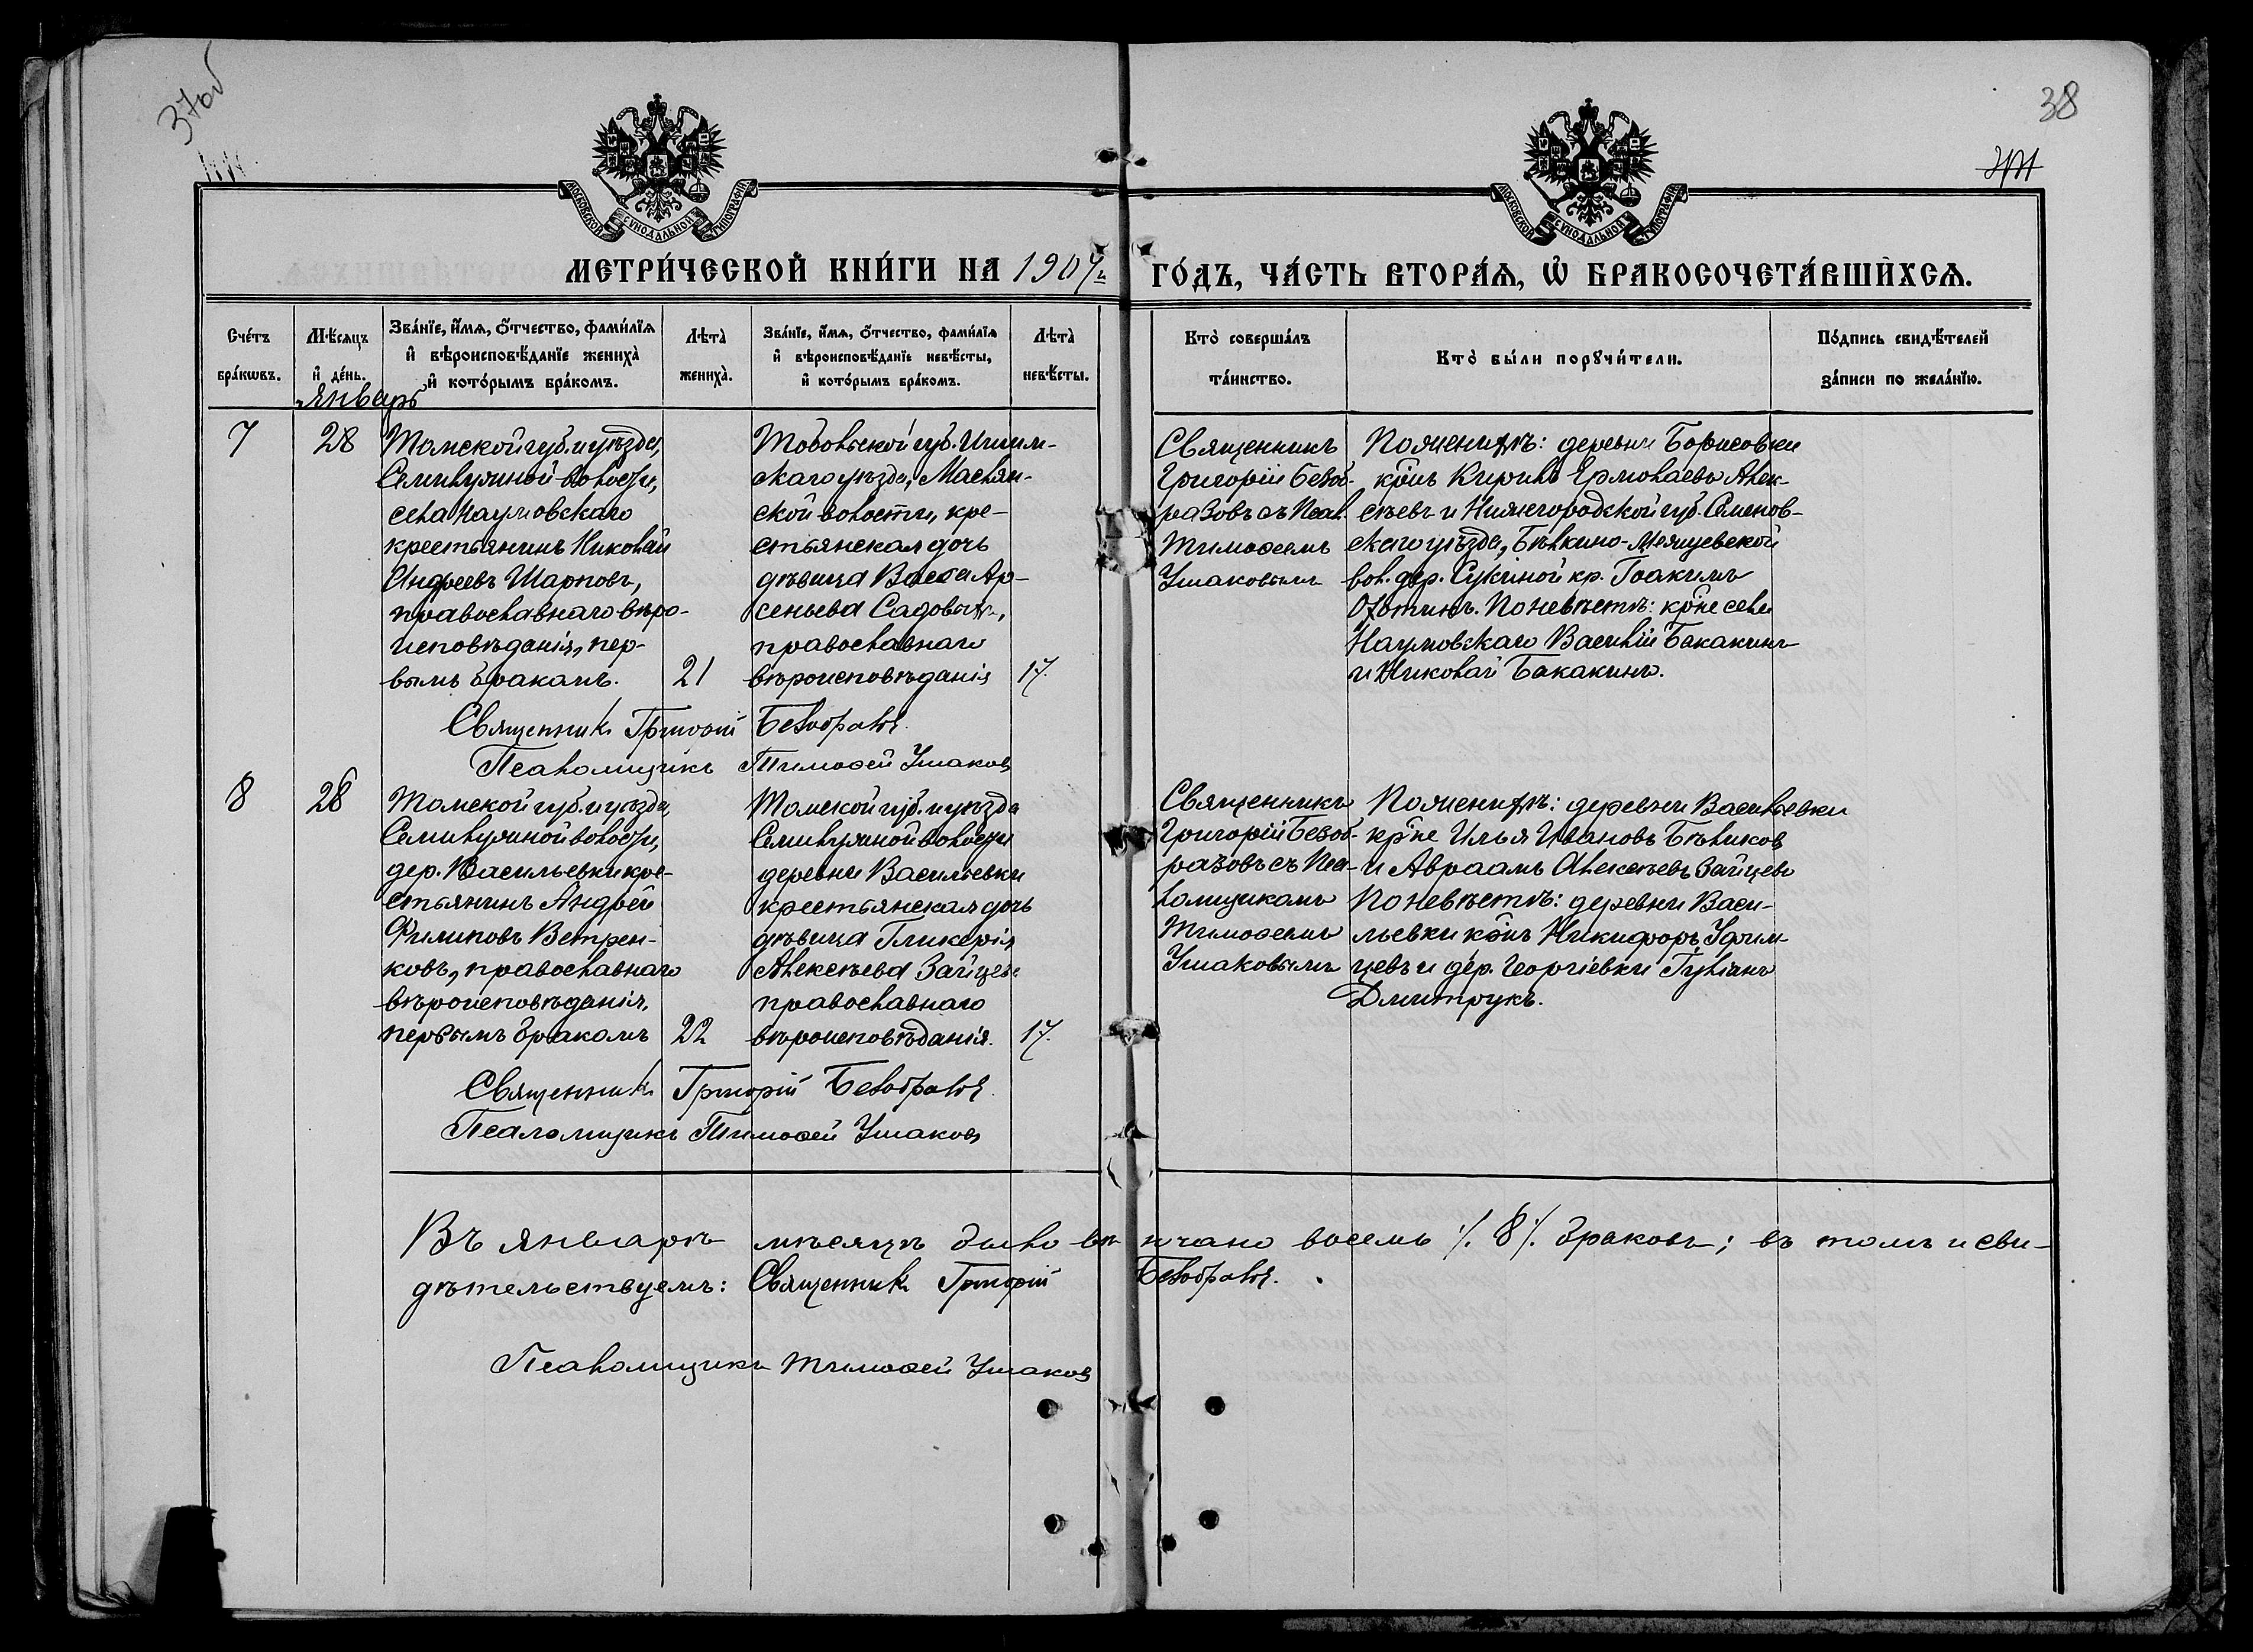 37об
38
МОСКОВСКОЙ СѴНОДАЛЬНОЙ ТИПОГРАФІИ
МОСКОВСКОЙ СѴНОДАЛЬНОЙ ТИПОГРАФІИ
МЕТРИ́ЧЕСКОЙ КНИ́ГИ НА 1907 г.
ГО́ДЪ, ЧА́СТЬ ВТОРА́Я, Ѡ҆ БРАКОСОЧЕТА́ВШИХСѦ.
Сче́тъ
бра́кѡвъ.
Мѣ́сяцъ
и҆ де́нь.
Зва́нїе, и҆́мѧ, ѻ҆́тчество, фами́лїѧ
и҆ вѣроисповѣ́данїе жениха̀
и҆ кото́рымъ бра́комъ.
Лѣта̀
жениха̀.
Зва́нїе, и҆́мѧ, ѻ҆́тчество, фами́лїѧ
и҆ вѣроисповѣ́данїе невѣ́сты,
и҆ кото́рымъ бра́комъ.
Лѣта̀
невѣ́сты.
Кто̀ соверша́лъ
та́инство.
Кто̀ бы́ли порꙋчи́тели.
По́дпись свидѣ́телей
за́писи по жела́нїю.
Январь
7
28
Томской губ. и уѣзда,
Семилужной волости,
села Наумовскаго
крестьянинъ Николай
Андреевъ Шарповъ,
православнаго вѣро-
исповѣданія, пер-
вымъ бракомъ.
21
Тобольской губ. Ишим-
скаго уѣзда, Маслян-
ской волости, кре-
стьянская дочь
дѣвица Васса Ар-
сеньева Садовыхъ,
православнаго
вѣроисповѣданія
17.
Священникъ
Григорій Безоб-
разовъ съ Псал.
Тимофеемъ
Ушаковымъ
По женихѣ: деревни Борисовки
кр̃нъ Кирилъ Ермолаевъ Алек-
сѣевъ и Нижегородской губ. Семенов-
скаго уѣзда, Бѣлкино-
вол. дер. кр. Іоакимъ
Охотинъ. По невѣстѣ: кр̃не села
Наумовскаго Василій Бакакинъ
и Николай Бакакинъ.
Священникъ Григорій Безобразовъ.
Псаломщикъ Тимоѳей Ушаковъ
8
28
Томской губ. и уѣзда,
Семилужной волости,
дер. Васильевки кре-
стьянинъ Андрей
Филиповъ Ветрен-
ковъ, православнаго
вѣроисповѣданія,
первымъ бракомъ
22
Томской губ. и уѣзда
Семилужной волости
деревни Васильевки
крестьянская дочь
дѣвица Гликерія
Алексѣева Зайцева
православнаго
вѣроисповѣданія.
17.
Священникъ
Григорій Безоб-
разовъ съ Пса-
ломщикомъ
Тимоѳеемъ
Ушаковымъ
По женихѣ: деревни Васильевки
кр̃не Илья Ивановъ Бѣликовъ
и Авраамъ Алексѣевъ Зайцевъ
По невѣстѣ: деревни Васи-
льевки кр̃нъ Никифоръ Уфим-
цевъ и дер. Георгіевки Гуліанъ
Дмитрукъ.
Священникъ Григорій Безобразовъ.
Псаломщикъ Тимоѳей Ушаковъ
Въ январѣ мѣсяцѣ было вѣнчано восемь ./. 8 ./. браковъ; въ томъ и сви-
дѣтельствуемъ: Священникъ Григорій Безобразовъ.
Псаломщикъ Тимоѳей Ушаковъ